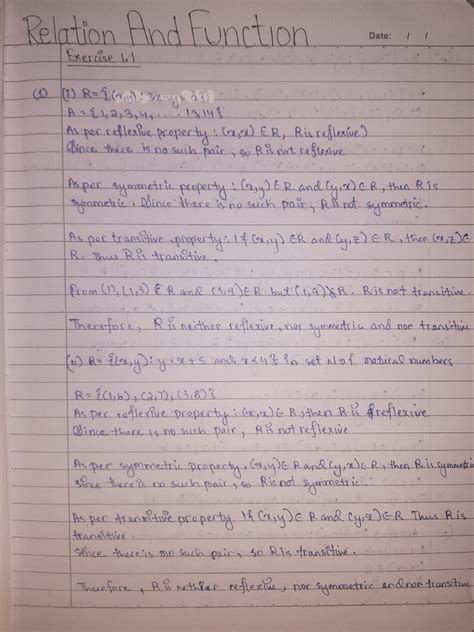 Relation And Function
Date: / /
Exercise 1.1
(1) (i) R = {(x,y) : 3x-y = 0}
A = {1,2,3,4, ..... 13,14}
As per reflexive property : (x,x) ∈ R, R is reflexive)
Since there is no such pair, so R is not reflexive
As per symmetric property : (x,y) ∈ R and (y,x) ∈ R, then R is
symmetric. Since there is no such pair, R is not symmetric.
As per transitive property : If (x,y) ∈ R and (y,z) ∈ R, then (x,z) ∈
R. Thus R is transitive.
From (1), (1,3) ∈ R and (3,9) ∈ R but (1,9) ∉ R. R is not transitive.
Therefore, R is neither reflexive, nor symmetric and nor transitive
(ii) R = {(x,y) : y = x + 5 and x < 4} in set N of natural numbers
R = {(1,6), (2,7), (3,8)}
As per reflexive property : (x,x) ∈ R, then R is reflexive
Since there is no such pair, R is not reflexive
As per symmetric property, (x,y) ∈ R and (y,x) ∈ R, then R is symmetric
Since there is no such pair, so R is not symmetric.
As per transitive property If (x,y) ∈ R and (y,z) ∈ R Thus R is
transitive.
Since there is no such pair, so R is transitive.
Therefore, R is neither reflexive, nor symmetric and nor transitive